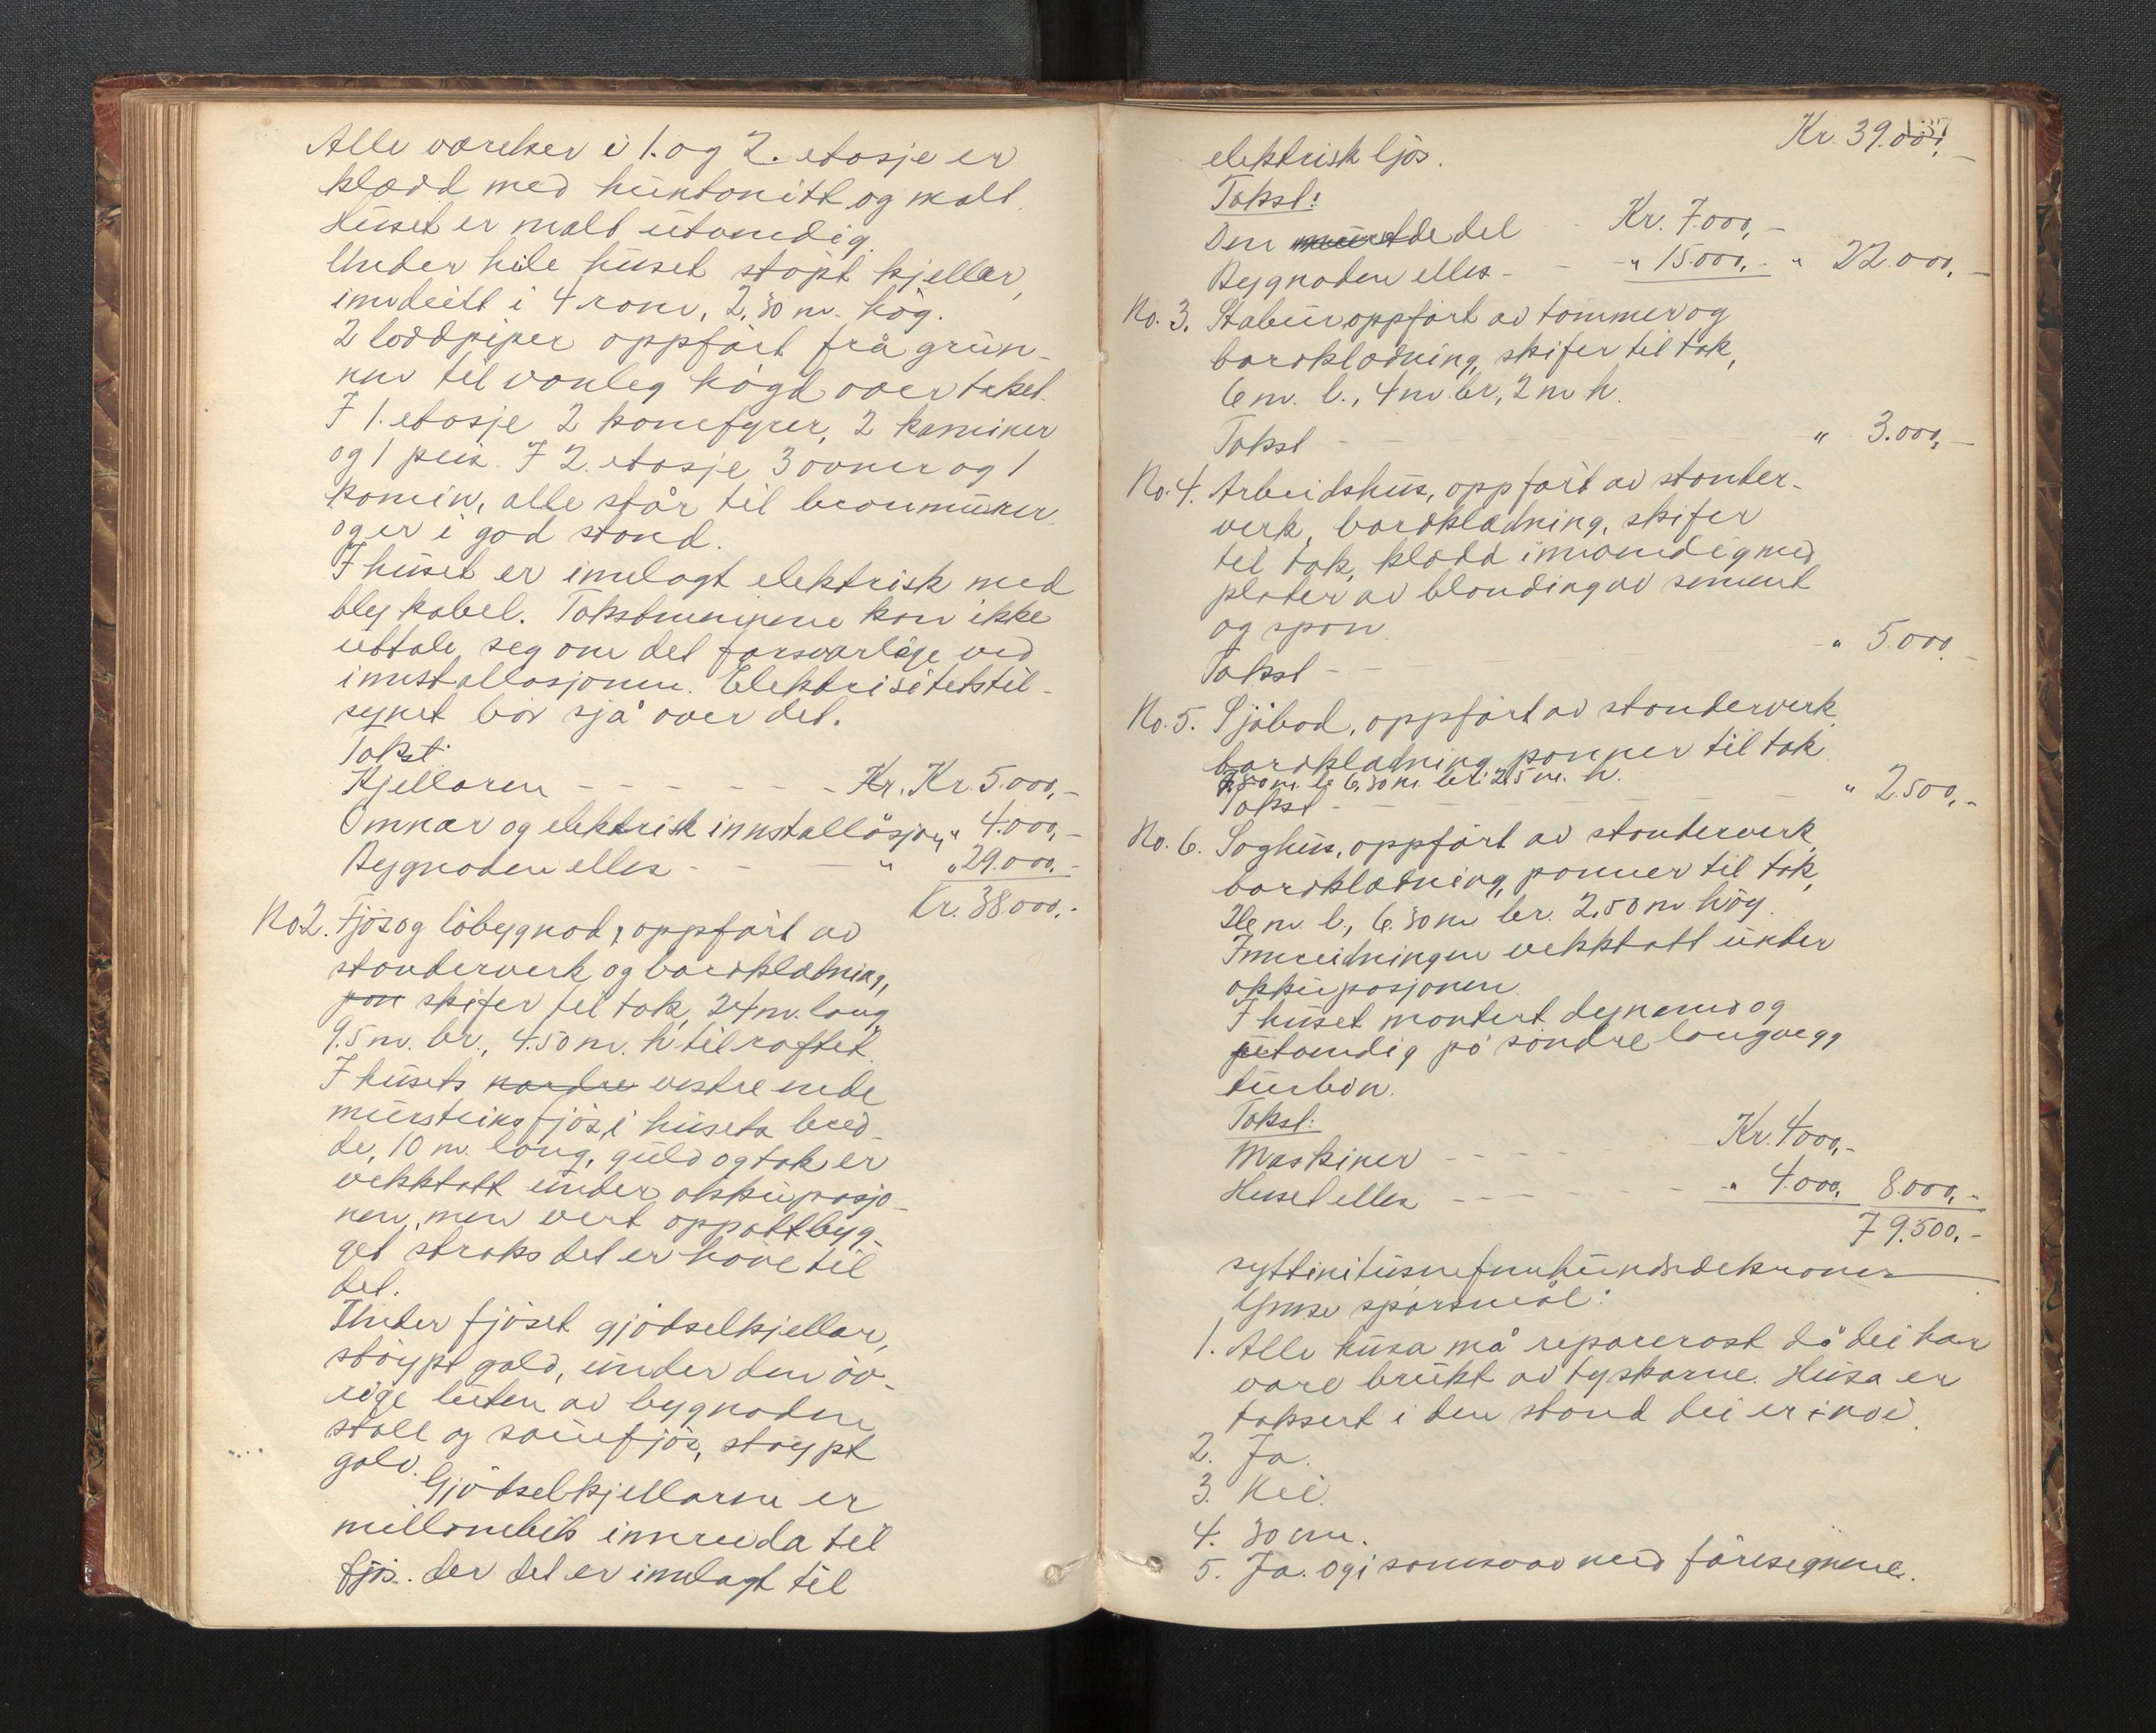 Alle værelser i 1. og 2. etasje er
klædd med huntonitt og malt.
Huset er malt utvendig.
Under heile huset støpt kjellar,
inndeilt i 4 rom, 2,30 m. høg.
2 loddpiper oppført frå grun-
nen til vanleg høgd over taket.
I 1. etasje 2 komfyrer, 2 kaminer
og 1 peis. I 2. etasje 3 ovner og 1
kamin, alle står til brannmurer
og er i god stand.
I huset er innlagt elektrisk med
bly kabel. Takstmennene kan ikke
uttale seg om det forsvarlige ved
innstallasjonen. Elektrisitetstil-
synet bør sjå over det.
Takst:
Kjellaren - - - - - - Kr. Kr. 5.000,-
Omnar og elektrisk innstallasjon " 4.000,-
Bygnaden elles - - - " " 29.000,-
Kr. 38.000,-
No 2. Fjøs og løbygnad, oppført av
stenderverk og bordklædning,
pan skifer til tak, 24 m. lang
9.5 m. br., 4.50 m. h. til raftet.
I husets nordre vestre ende
mursteins fjøs, i husets bred-
de, 10 m. lang, gulv og tak er
vekktatt under okkupasjo-
nen, men vert oppattbyg-
get straks det er høve til
det.
Under fjøset gjødselkjellar,
støypt golv, under den øv-
rige luten av bygnaden
stall og sauefjøs, støypt
golv. Gjødselkjellaren er
millombils innreida til
fjøs. der det er innlagt til
137
Kr. 39.000,-
elektrisk ljos.
Takst:
Den murtde del - Kr. 7.000,-
Bygnaden elles - - " 15.000,- " 22.000,-
No. 3. Stabur oppført av tømmer og
bordklædning, skifer til tak,
6 m. l., 4 m. br., 2 m h.
Takst - - - " 3.000,-
No. 4. Arbeidshus, oppført av stender-
verk, bordklædning, skifer
til tak, klædd innvendig med
plater av blanding av sement
og spon.
Takst - - - " 5000,-
No. 5. Sjøbod, oppført av stenderverk,
bordklædning, panner til tak.
7.80 m. l. 6,30 m. br. 2.5 m. h.
Takst - - - " 2.500,-
No. 6. Saghus, oppført av stenderverk,
bordklædning, panner til tak,
26 m. l., 6.30 m br. 2,50 m. høg.
Innreidningen vekktatt under
okkupasjonen.
I huset montert dynamo og
utvendig på søndre langvegg
turbin.
Takst:
Maskiner - - - Kr. 4000,-
Huset elles - - - " 4.000, 8.000,-
79.500,-
syttinitusenfemhundredekroner
Ymse spørsmål:
1. Alle husa må reparerast då dei har
vore brukt av tyskarne. Husa er
taksert i den stand dei er i no.
2. Ja.
3. Nei.
4. 30 cm.
5. Ja. og i samsvar med føresegnene.